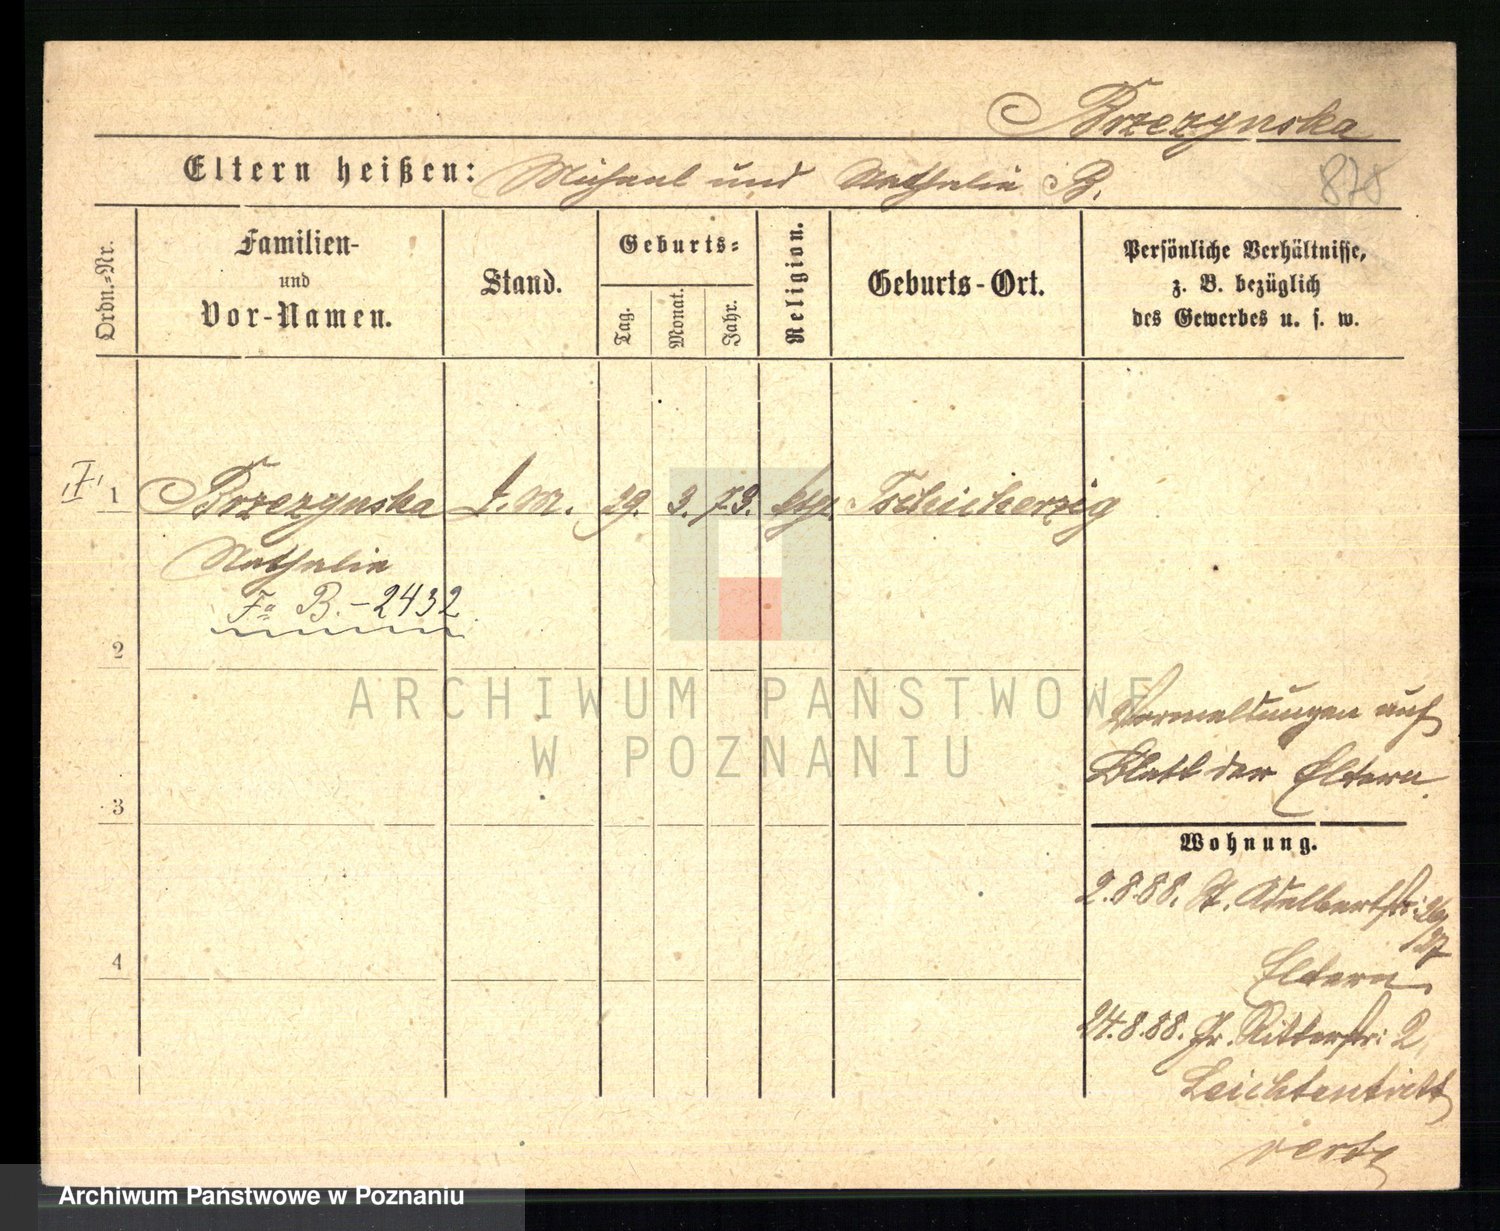 Brzezynska
Eltern heißen: Michael und Nathalie B.
878
Ordn.-Nr.
Familien-
und
Vor-Namen.
Stand.
Geburts-
Tag.
Monat.
Jahr.
Religion.
Geburts-Ort.
Persönliche Verhältnisse,
z. B. bezüglich
des Gewerbes u. s. w.
1 Brzezynska D. M. 29. 3. 73. Tschicherzig
Nathalie
Fa B. - 2432
2
3
4
Vermeldungen auf
Blatt der Eltern.
Wohnung.
2.8.88. St. Adalbertstr: 26/27
Eltern.
24.8.88. Gr. Ritterstr: 2,
Leichtentritt
verte
ARCHIWUM PAŃSTWOWE
W POZNANIU
Archiwum Państwowe w Poznaniu